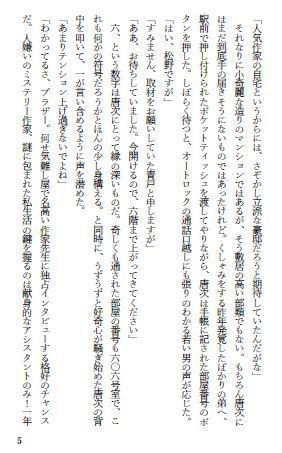 「人気作家の自宅というからには、さぞかし立派な豪邸だろうと期待していたんだがな」
それなりに小綺麗な造りのマンションではあるが、そう敷居の高い部類でもない。もちろん唐次に
はまだ到底手の届きそうにないものではあったけれど。くしゃみをする昨年発覚したばかりの弟へ、
駅前で押し付けられたポケットティッシュを渡してやりながら、唐次は手帳に記された部屋番号のボ
タンを押した。しばらく待つと、オートロックの通話口越しにも張りのわかる若い男の声が応じた。
「はい、松野ですが」
「すみません、取材をお願いしていた青戸と申しますが」
「ああ、お待ちしていました。今開けるので、六階まで上がってきてください」
六、という数字は唐次にとって縁の深いものだ。奇しくも通された部屋の番号も六〇六号室で、こ
れも何かの符号だろうかとほんの少し身構える。と同時に、うずうずと好奇心が騒ぎ始めた唐次の背
中を叩いて、一が言い含めるように声を潜めた。
「あまりテンション上げ過ぎないでよね」
「わかってるさ、ブラザー。何せ気難し屋で名高い作家先生に独占インタビューする格好のチャンス
だ。人嫌いのミステリー作家、謎に包まれた私生活の鍵を握るのは献身的なアシスタントのみ！一年
5